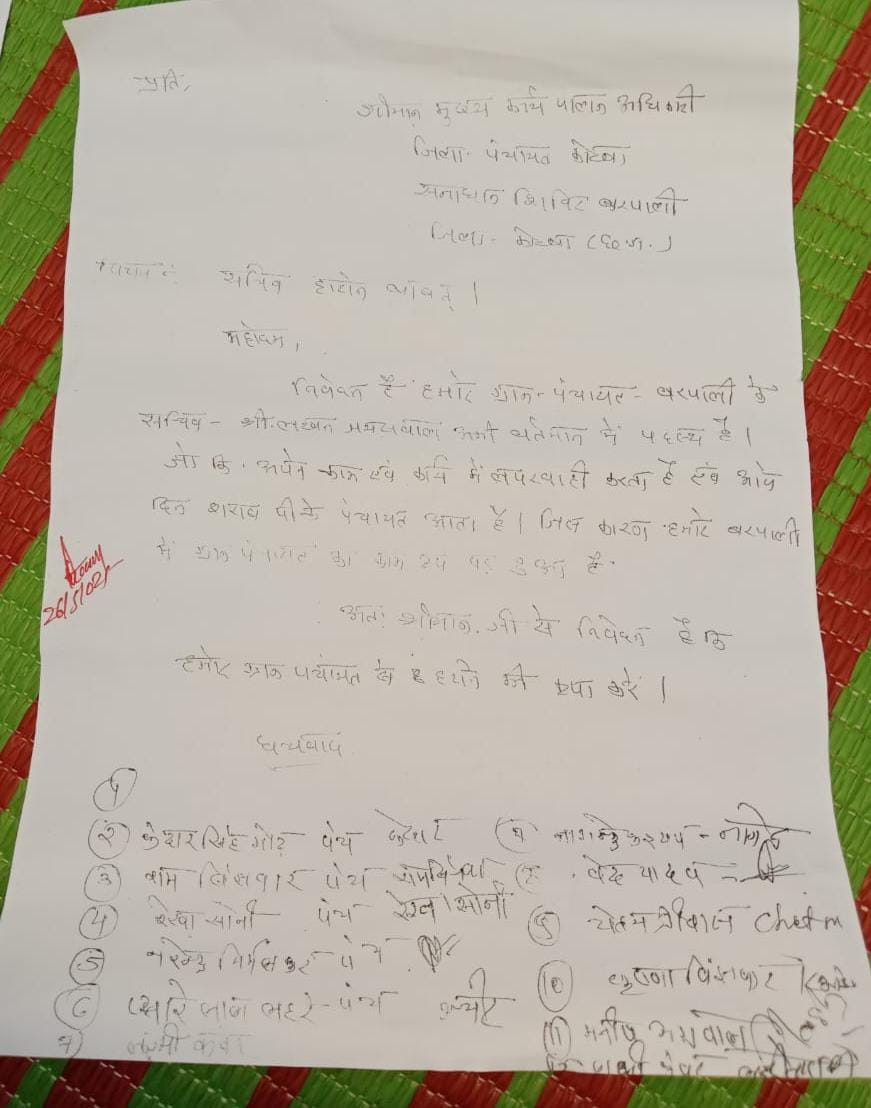 प्रति,
श्रीमान् मुख्य कार्य पालन अधिकारी
जिला पंचायत कोरबा
समाधान शिविर बरपाली
जिला - कोरबा (छ.ग.)
सचिव हटाने बाबत् |
महोदय,
निवेदन है हमारे ग्राम - पंचायत - बरपाली के
सचिव - श्री लखन जायसवाल अभी वर्तमान में पदस्थ है |
जो कि अपने काम एवं कार्य में लापरवाही करता है एवं आये
दिन शराब पीके पंचायत आता है | जिस कारण हमारे बरपाली
में ग्राम पंचायत का काम ठप पड़ हुआ है
26/5/02
अतः श्रीमान जी से निवेदन है कि
हमारे ग्राम पंचायत से हटाने की कृपा करें |
धन्यवाद
1
2 केशर सिंह गोड़ पंच
3 राम बिंसवार पंच
4 रेखा सोनी पंच
5 नरेन्द्र निर्मलकर पंच
6 प्यारे लाल लहरे - पंच
7)
वेद यादव -
Chetan
10 कृष्णा बिंसवार
11 मनीष अग्रवाल